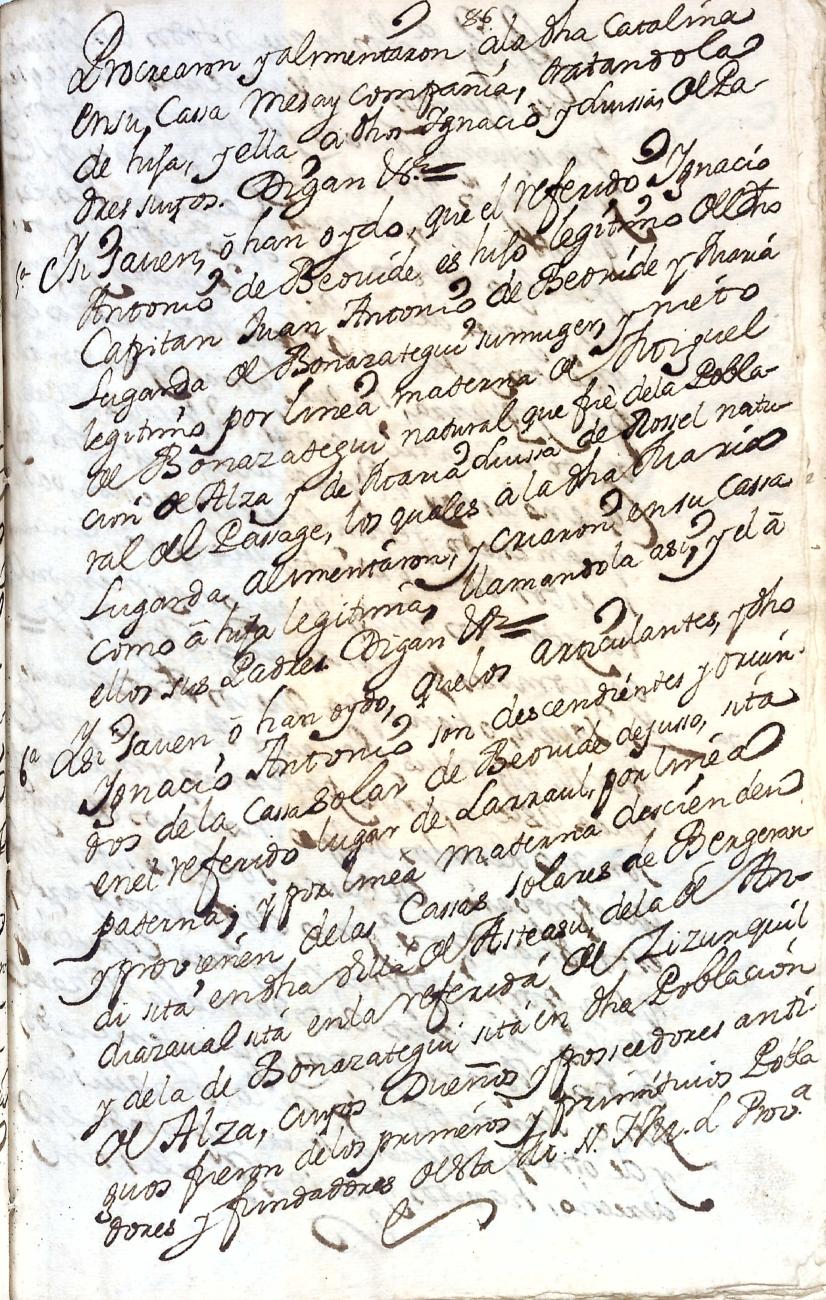 86.
Procrearon y alimentaron a la dha Catalina
en su Cassa mesa y compañia, tratandola
de hija, y ella a dhos Ignacio y Luissa, de Pa-
dres suyos. Digan &ª =
5ª Si saven, ô han oydo, que el referido Ygnacio
Antonio de Beovide es hijo legitimo del dho
Capitan Juan Antonio de Beovide y Maria
Luganda de Bonazategui su muger, y nieto
legitimo por linea materna de Miguel
de Bonazategui natural que fue de la Pobla-
cion de Alza y de Maria Luissa de Rossel natu-
ral del Passage, los quales a la dha Maria
Luganda alimentaron, y criaron en su Cassa
como â hija legitima, llamandola asi, y el â
ellos sus Padres Digan &ª =
6ª Y si saven ô han oydo, que los articulantes, y dho
Ygnacio Antonio son descendientes y oriun-
dos de la Cassa solar de Beovide de jusso, sita
en el referido lugar de Larraul, por linea
paterna; y por linea materna descienden
y provienen de las Cassas solares de Bergeran-
di sita en dha villa de Asteasu, de la de An-
chiazaval sita en la referida de Zizurquil
y de la de Bonazategui sita en dha Poblacion
de Alza, cuyos Dueños y posseedores anti-
guos fueron de los primeros y primitivos Pobla
dores y fundadores desta M. N. y M. L. Provª